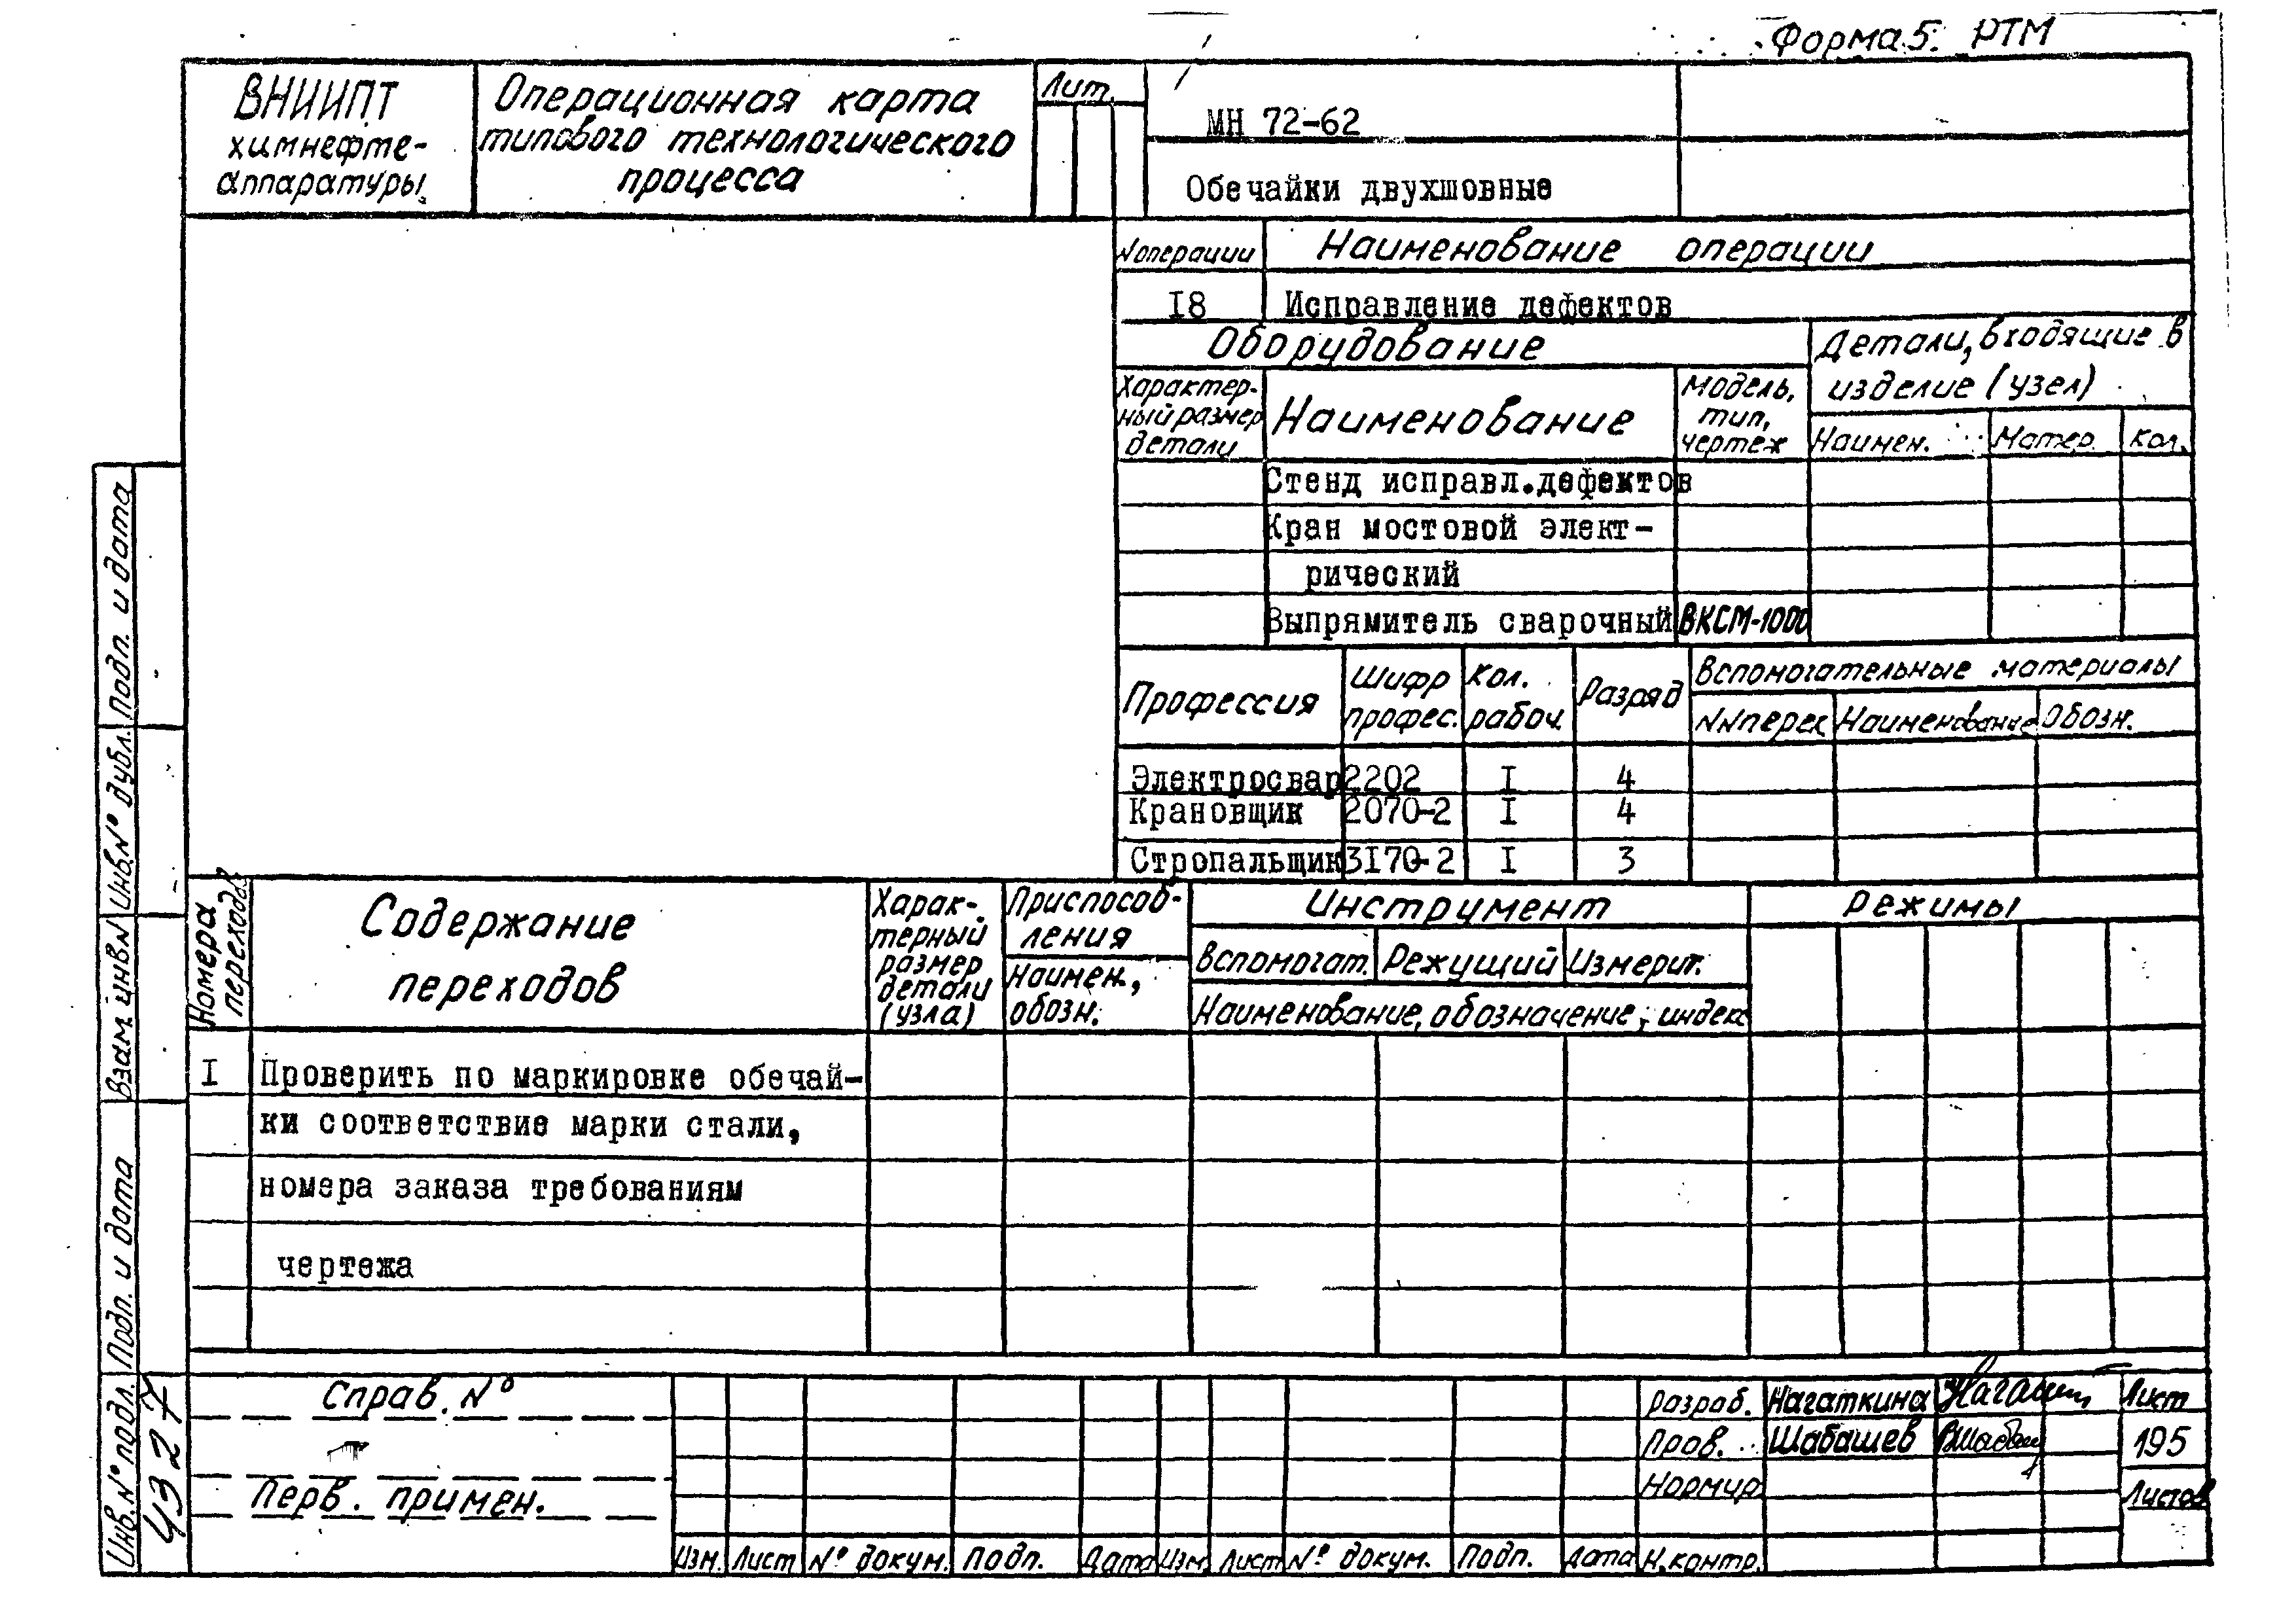 Форма 5. РТМ
ВНИИПТ
химнефте-
аппаратуры
Операционная карта
типового технологического
процесса
Лит.
МН 72-62
Обечайки двухшовные
№операции
Наименование операции
I8
Исправление дефектов
Оборудование
Детали, входящие в
изделие (узел)
Характер-
ный размер
детали
Наименование
Модель,
тип,
чертеж
Наимен.
Матер.
Кол.
Стенд исправл.дефектов
Кран мостовой элект-
рический
Выпрямитель сварочный
ВКСМ-1000
Профессия
Шифр
профес.
Кол.
рабоч.
Разряд
Вспомогательные материалы
№№перех
Наименование
Обозн.
Электросвар
2202
I
4
Крановщик
2070-2
I
4
Стропальщик
3I70-2
I
3
Номера
переходов
Содержание
переходов
Харак-
терный
размер
детали
(узла)
Приспособ-
ления
Наимен.,
обозн.
Инструмент
Вспомогат.
Режущий
Измерит.
Наименование, обозначение, индекс
Режимы
I
Проверить по маркировке обечай-
ки соответствие марки стали,
номера заказа требованиям
чертежа
Подп. и дата
Инв.№ дубл.
Взам. инв.№
Подп. и дата
Инв.№ подл.
4327
Справ. №
Перв. примен.
Изм.
Лист
№ докум.
Подп.
Дата
Изм.
Лист
№ докум.
Подп.
Дата
Разраб.
Нагаткина
Пров.
Шабашев
Нормир.
Н.контр.
Лист
195
Листов